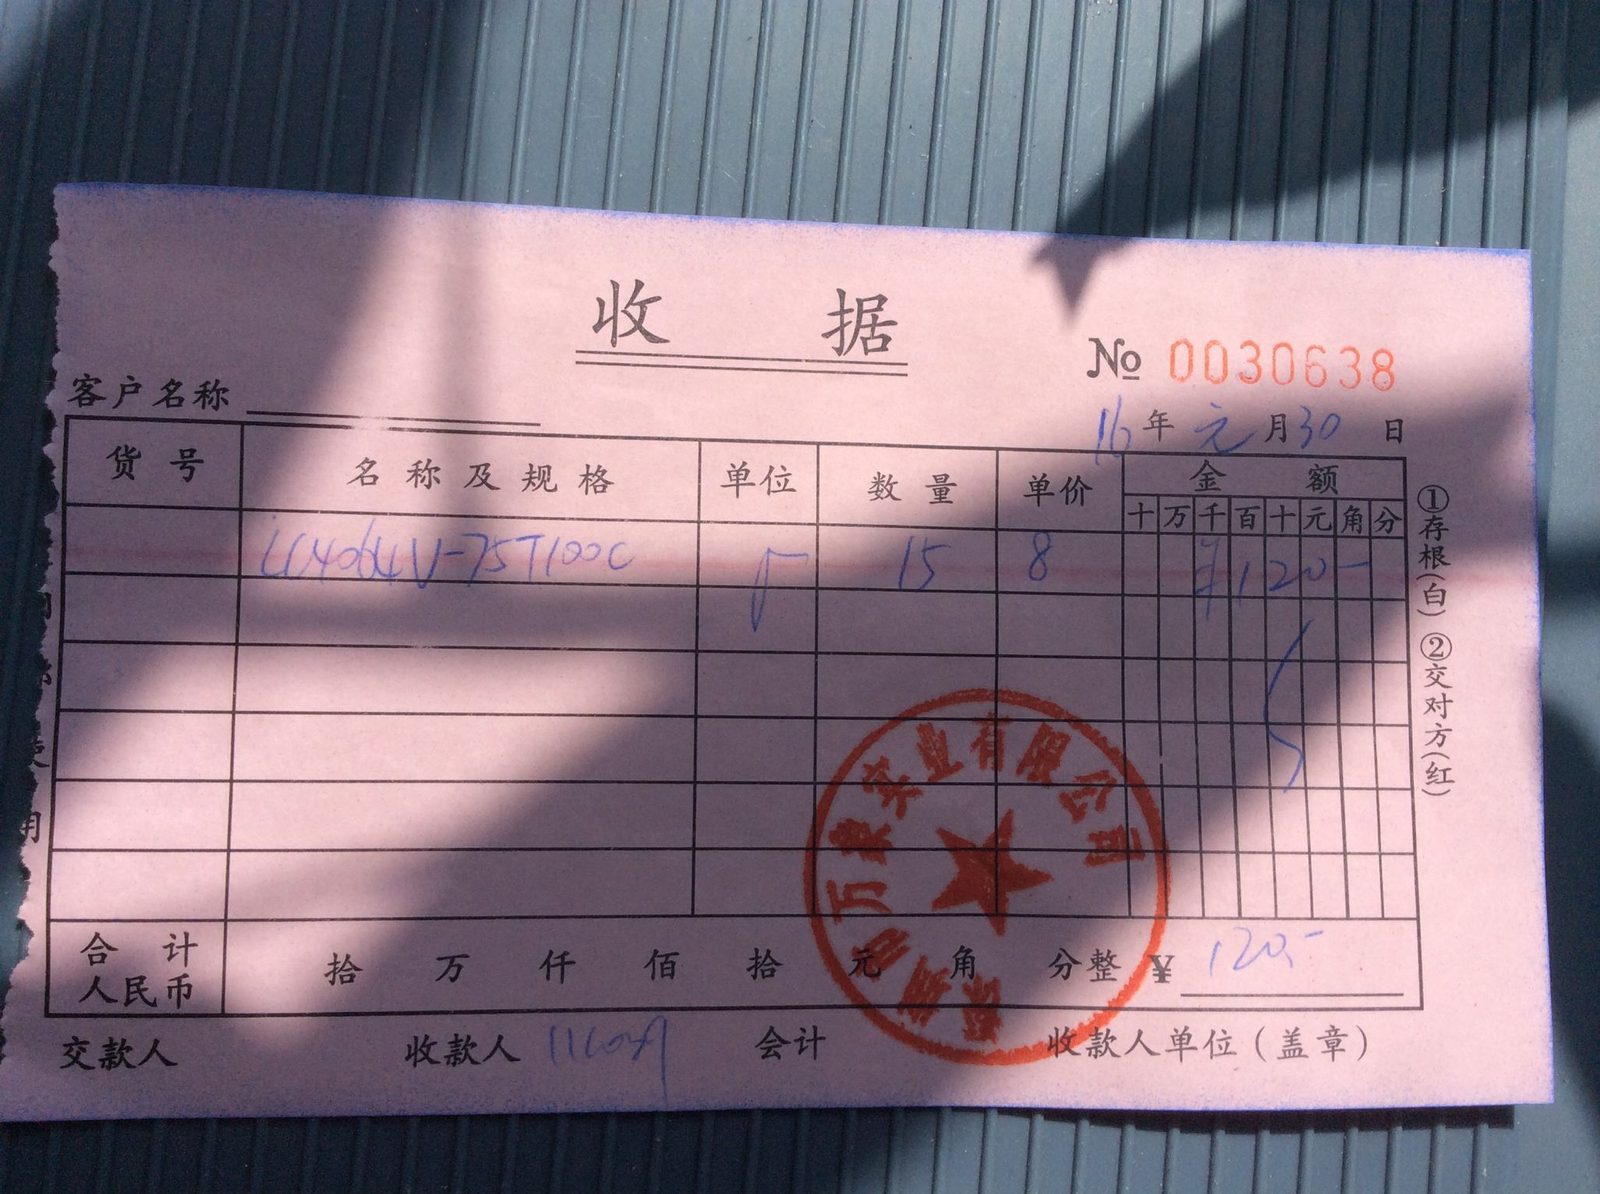 收 据
No 0030638
客户名称
16 年 元 月 30 日
货号 名称及规格 单位 数量 单价 金额
十 万 千 百 十 元 角 分
LC4064V-75T100C 15 8 ¥120-
合计
人民币
拾 万 仟 佰 拾 元 角 分整 ¥ 120.-
交款人 收款人 会计 收款人单位(盖章)
①存根(白) ②交对方(红)
实业有限公司